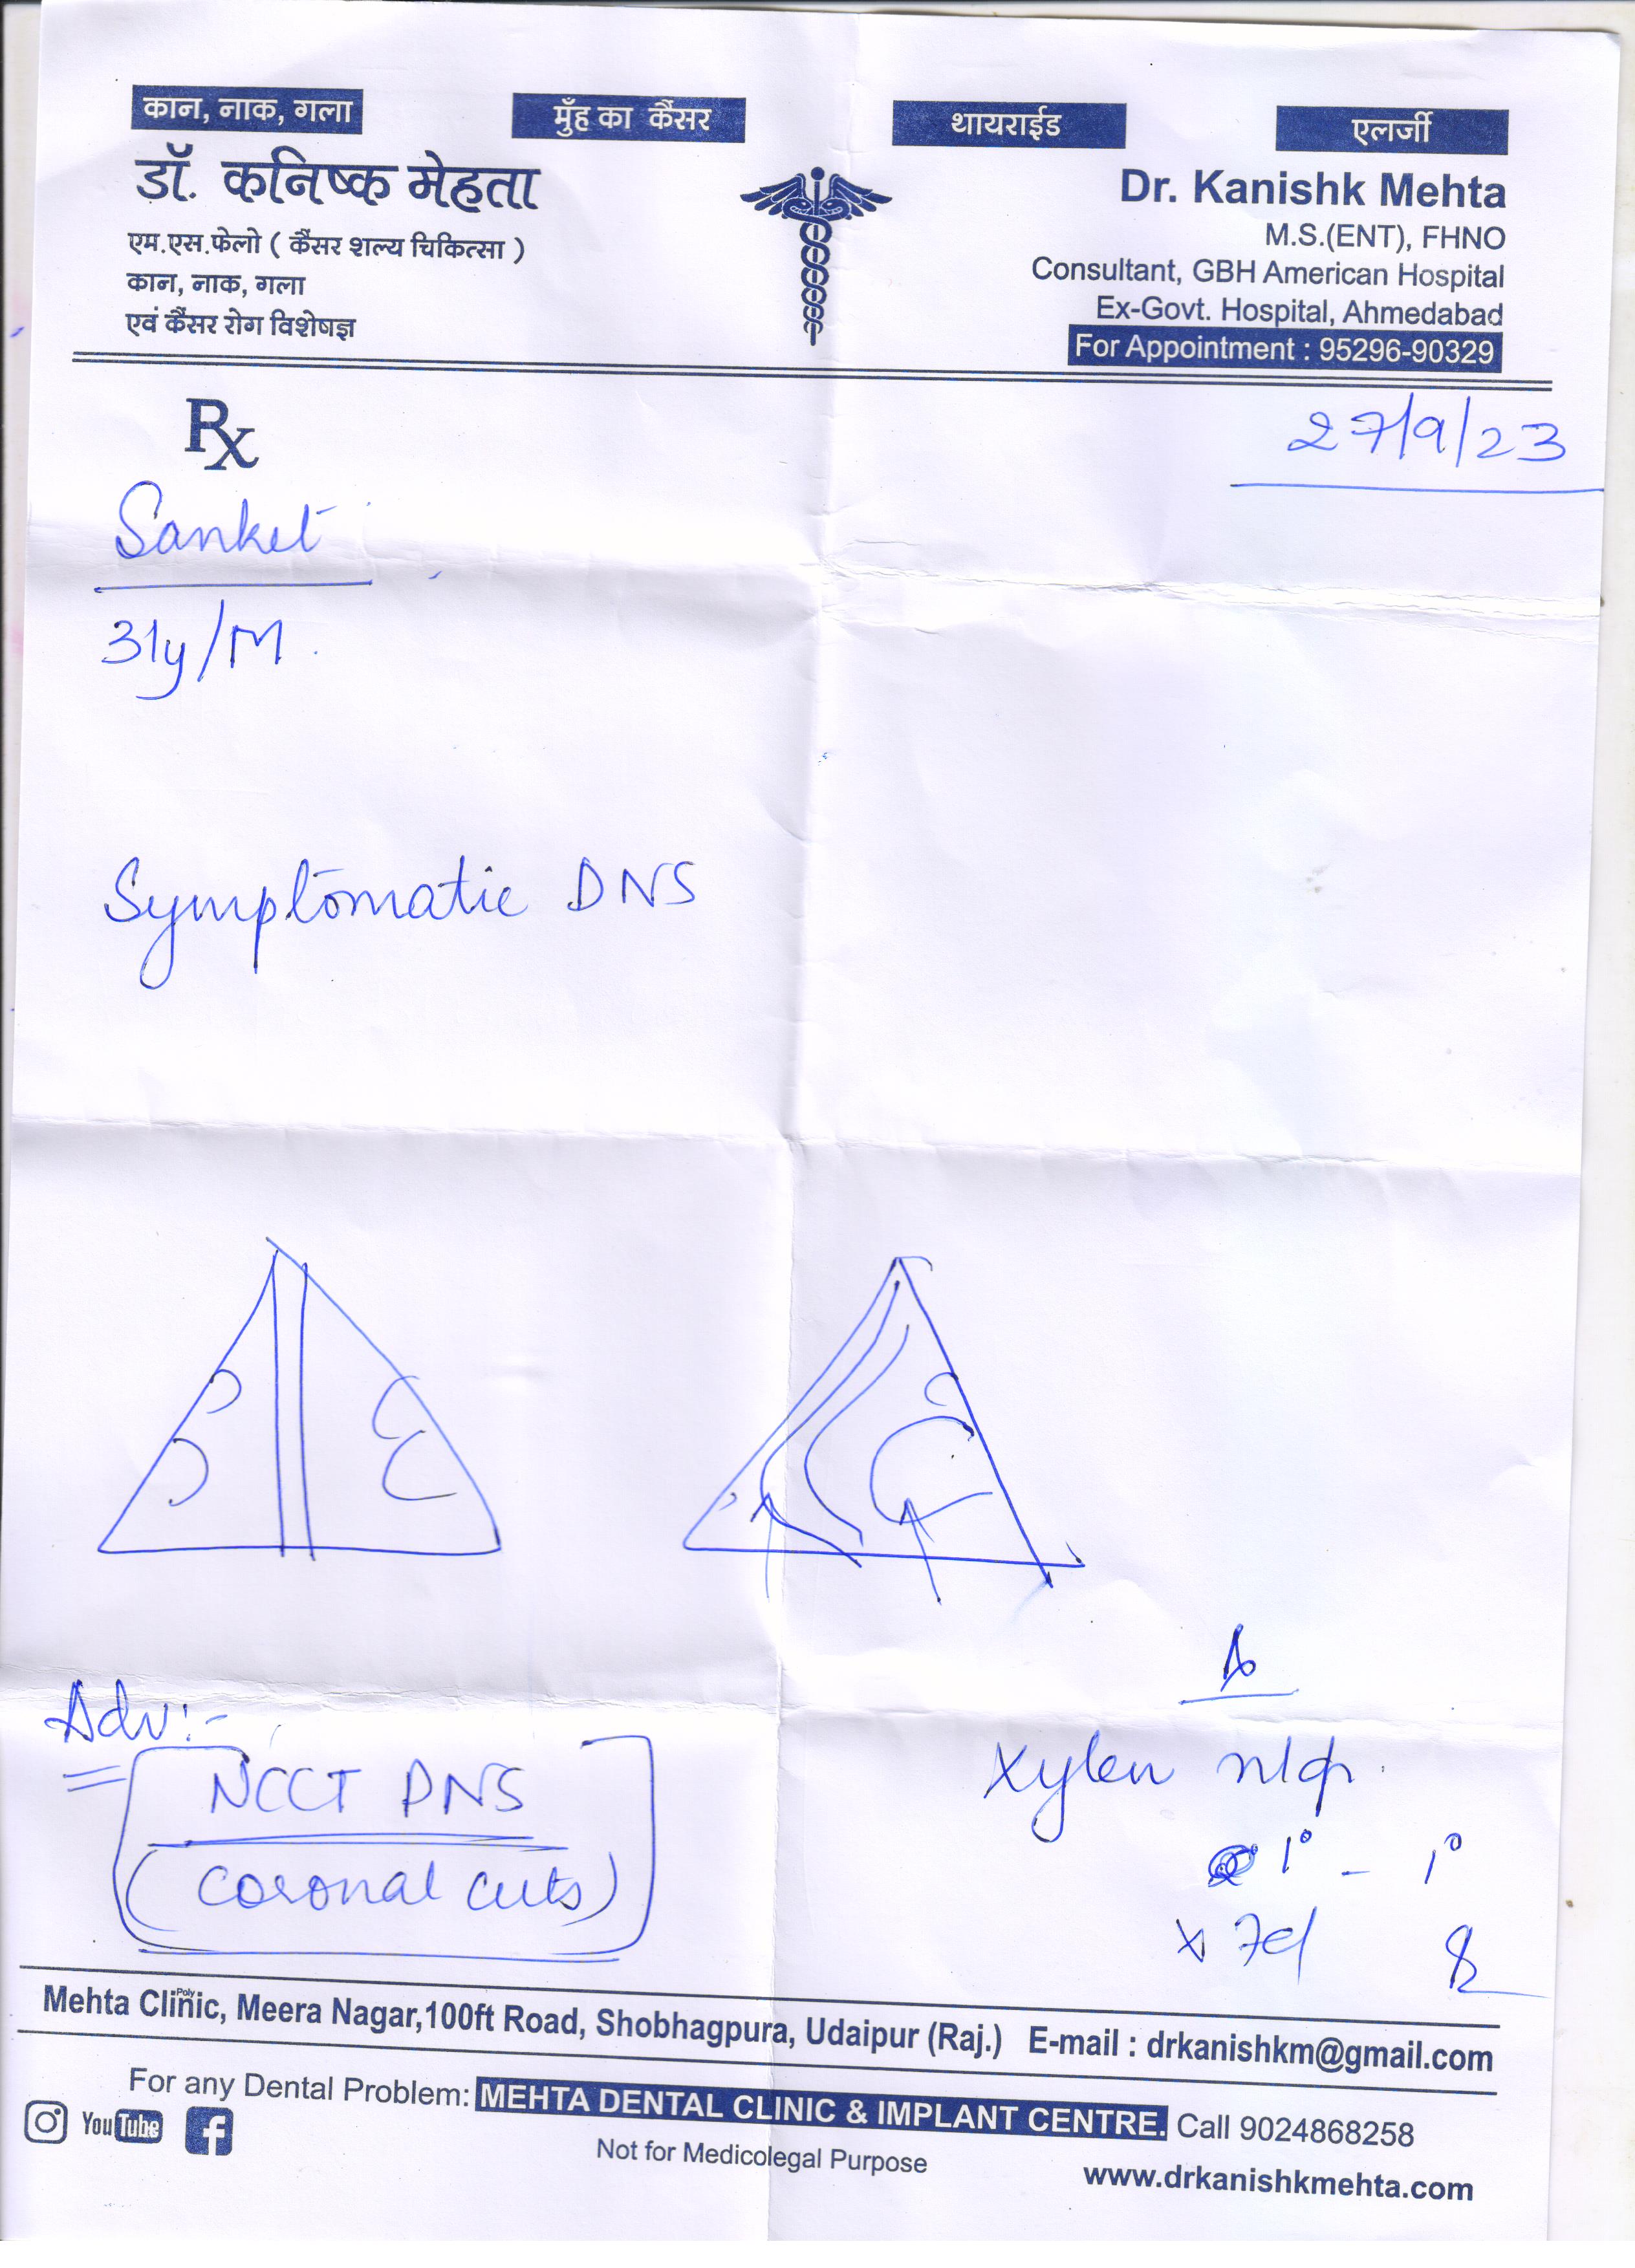 कान, नाक, गला
मुँह का कैंसर
थायराईड
एलर्जी
डॉ. कनिष्क मेहता
एम.एस.फेलो ( कैंसर शल्य चिकित्सा )
कान, नाक, गला
एवं कैंसर रोग विशेषज्ञ
Dr. Kanishk Mehta
M.S.(ENT), FHNO
Consultant, GBH American Hospital
Ex-Govt. Hospital, Ahmedabad
For Appointment : 95296-90329
Rx
27/9/23
Sanket
31y/M.
Symptomatic DNS
Adv:-
NCCT PNS
(coronal cuts)
Xylen
1° - 1°
x 7d
Mehta Poly Clinic, Meera Nagar,100ft Road, Shobhagpura, Udaipur (Raj.) E-mail : drkanishkm@gmail.com
For any Dental Problem: MEHTA DENTAL CLINIC & IMPLANT CENTRE. Call 9024868258
YouTube
Not for Medicolegal Purpose
www.drkanishkmehta.com